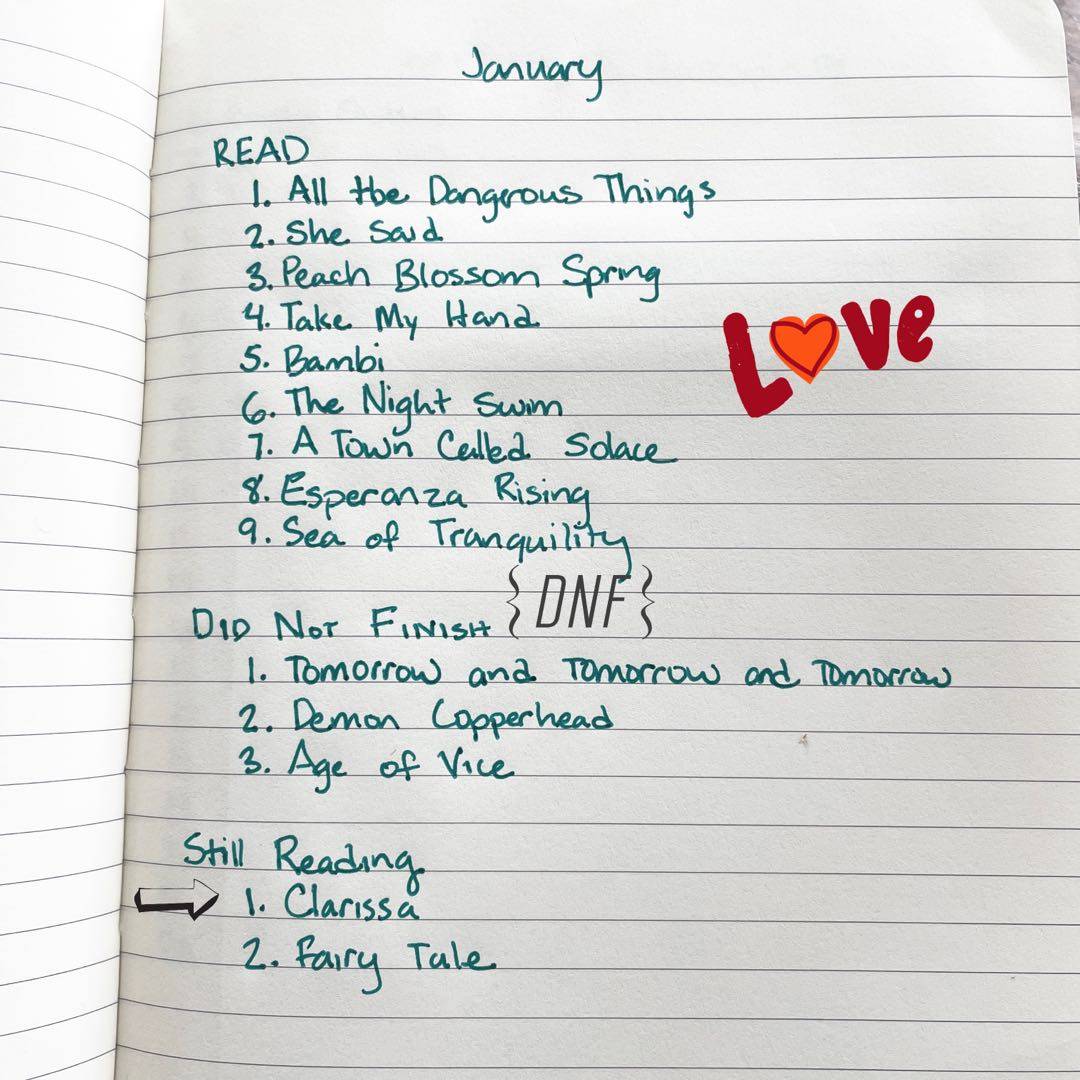 January
READ
1. All the Dangerous Things
2. She Said
3. Peach Blossom Spring
4. Take My Hand
LOVE
5. Bambi
6. The Night Swim
7. A Town Called Solace
8. Esperanza Rising
9. Sea of Tranquility
DID NOT FINISH {DNF}
1. Tomorrow and Tomorrow and Tomorrow
2. Demon Copperhead
3. Age of Vice
Still Reading
1. Clarissa
2. Fairy Tale